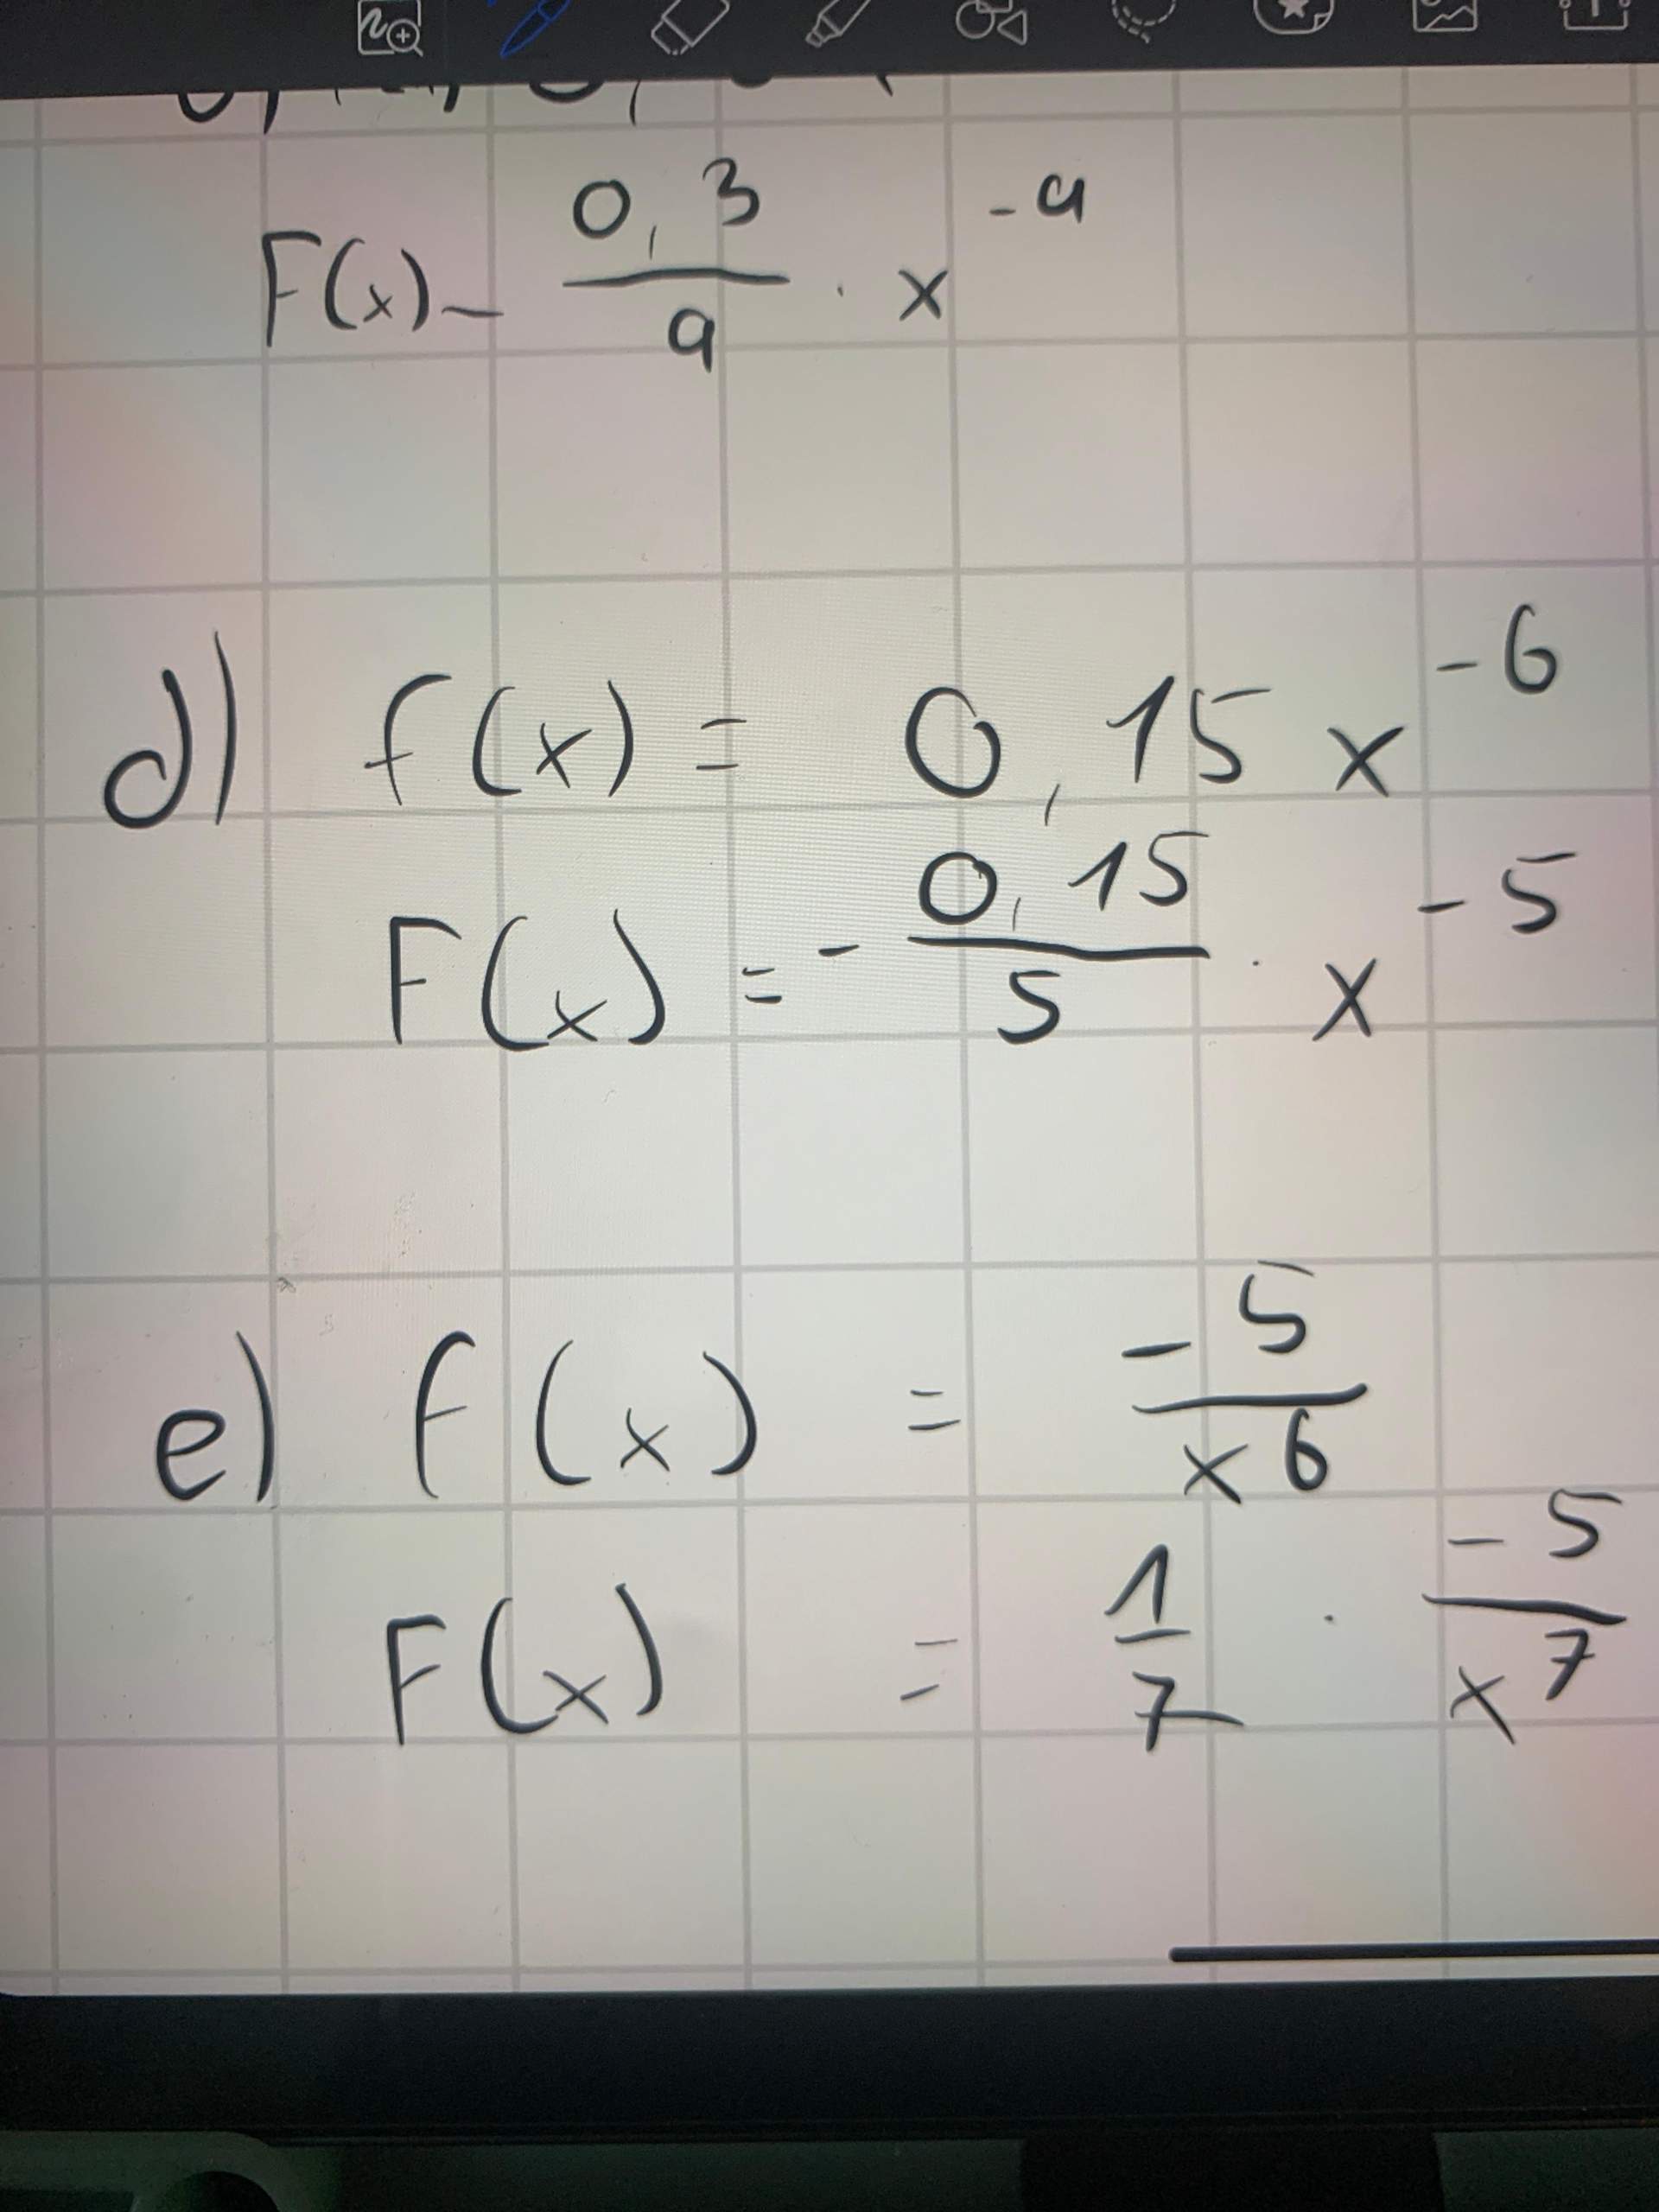 F(x) - 0,3/9 · x^-9
d) f(x) = 0,15 x^-6
F(x) = - 0,15/5 · x^-5
e) f(x) = -5/x^6
F(x) = 1/7 · -5/x^7